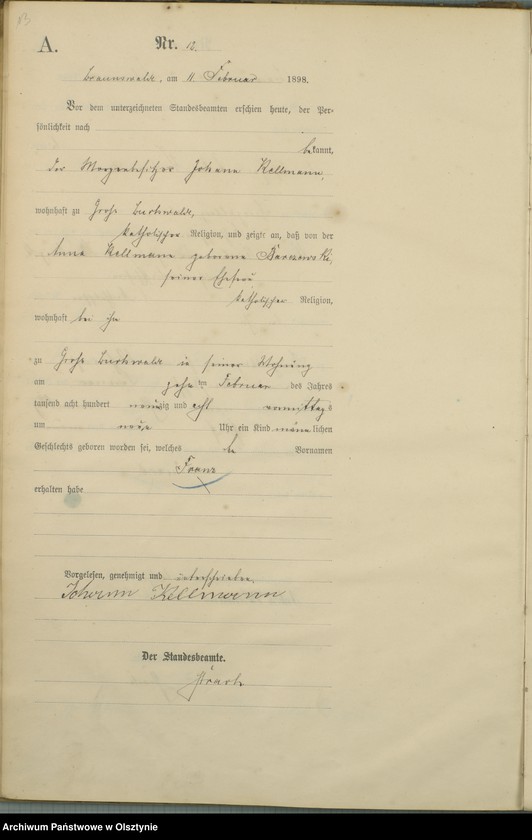 A.
Nr. 12.
Braunswalde, am 11 Februar 1898.
Vor dem unterzeichneten Standesbeamten erschien heute, der Per-
sönlichkeit nach
bekannt,
der Johann Kellmann,
wohnhaft zu Groß Buchwalde,
katholischer Religion, und zeigte an, daß von der
Anna Kellmann geborene
seiner Ehefrau
katholischer Religion,
wohnhaft bei ihm
zu Groß Buchwalde in seiner Wohnung
am zehnten Februar des Jahres
tausend acht hundert neunzig und acht vormittags
um neun Uhr ein Kind männlichen
Geschlechts geboren worden sei, welches Vornamen
Franz
erhalten habe
Vorgelesen, genehmigt und unterschrieben.
Johann Kellmann
Der Standesbeamte.
Archiwum Państwowe w Olsztynie